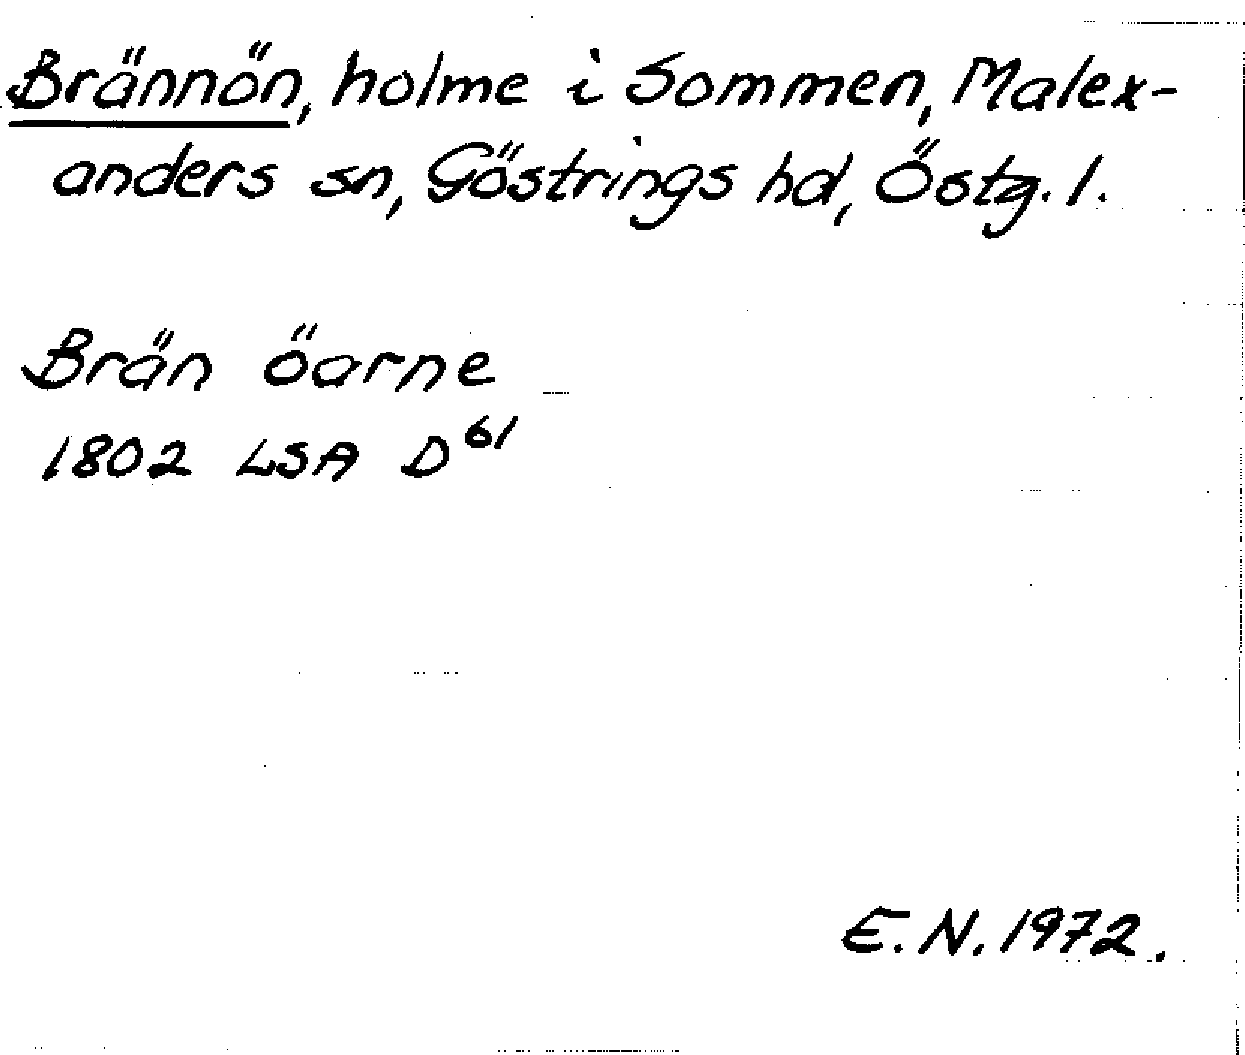 Brännön, holme i Sommen, Malex-
anders sn, Göstrings hd, Östg. l.
Brän öarne
1802 LSA D61
E. N. 1972.